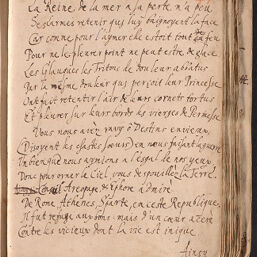 La Reine de la mer n'a parté n'a peu
De larmes retenir qui luy baignoyent la face
Car comme pour l'aymer elle estoit tout de feu
Pour ne le pleurer point ne peut estre de glace
Les Glauques les Tritons de douleur
Par la mesme douleur qui perçoit leur Princesse
Ont fait retentir l'air de leurs cornets tortus
Et pleurer sur leurs bords les vierges de Permesse
Vous nous avez ravy ô Destins envieux
Disoyent les chastes sœurs en nous faisant la guerre
Un bien que nous aymions à l'esgal de nos yeux
Donc pour orner le Ciel vous despouillez la Terre
Areopage admiré
De Rome, Athenes, Sparte, en ceste Republique
Il fut refuge aux bons mais d'un cœur aceré
Contre les vicieux dont la vie est inique
Ainsy